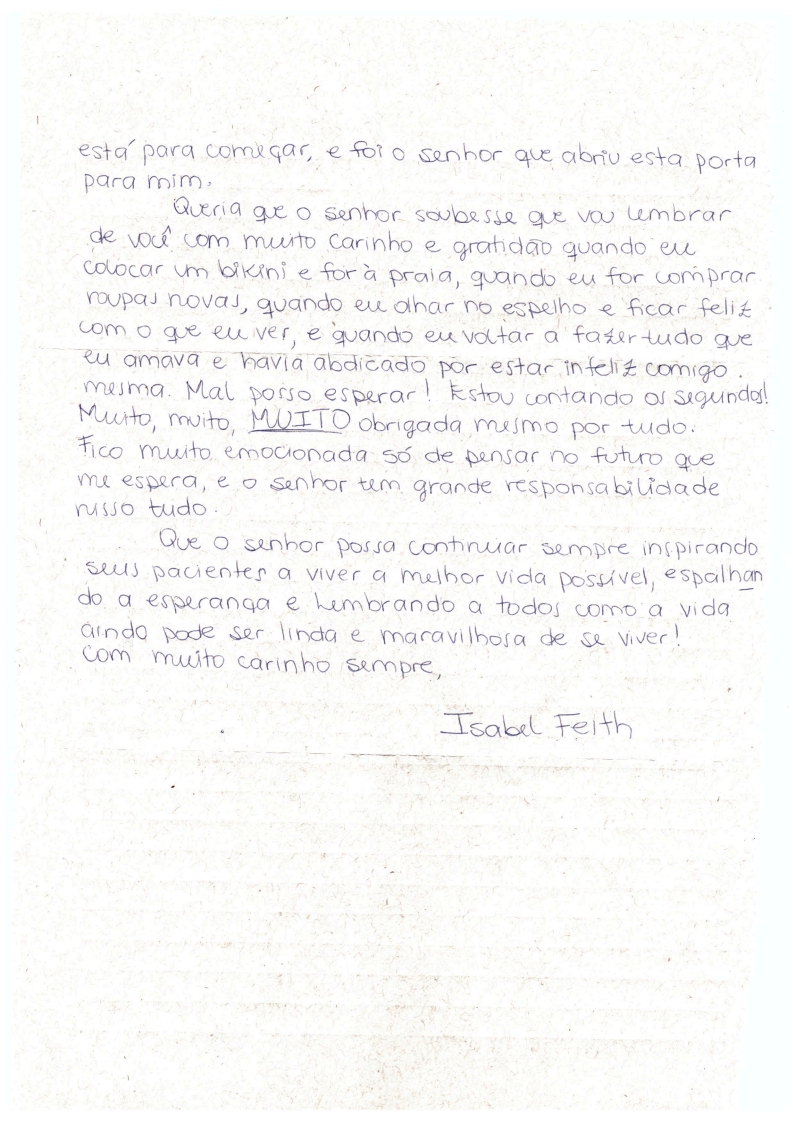 está para começar, e foi o senhor que abriu esta porta
para mim.
Queria que o senhor soubesse que vou lembrar
de você com muito carinho e gratidão quando eu
colocar um bikini e for à praia, quando eu for comprar
roupas novas, quando eu olhar no espelho e ficar feliz
com o que eu ver, e quando eu voltar a fazer tudo que
eu amava e havia abdicado por estar infeliz comigo.
mesma. Mal posso esperar! Estou contando os segundos!
Muito, muito, MUITO obrigada mesmo por tudo.
Fico muito emocionada só de pensar no futuro que
me espera, e o senhor tem grande responsabilidade
nisso tudo.
Que o senhor possa continuar sempre inspirando
seus pacientes a viver a melhor vida possível, espalhan
do a esperança e lembrando a todos como a vida
ainda pode ser linda e maravilhosa de se viver!
Com muito carinho sempre,
Isabel Feith